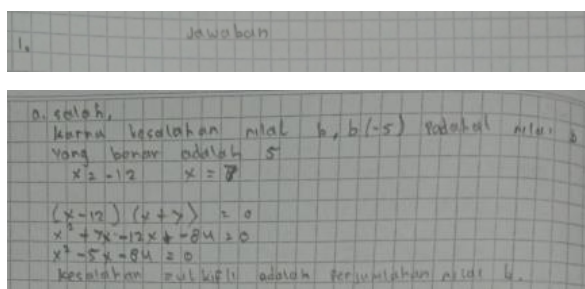 Jawaban
1.
a. salah,
karna kesalahan nilai b, b(-5) padahal nilai b
yang benar adalah 5
x = -12 x = 7
(x-12) (x+7) = 0
x² +7x -12x + -84 = 0
x² -5x -84 = 0
kesalahan zulkifli adalah penjumlahan nilai b.